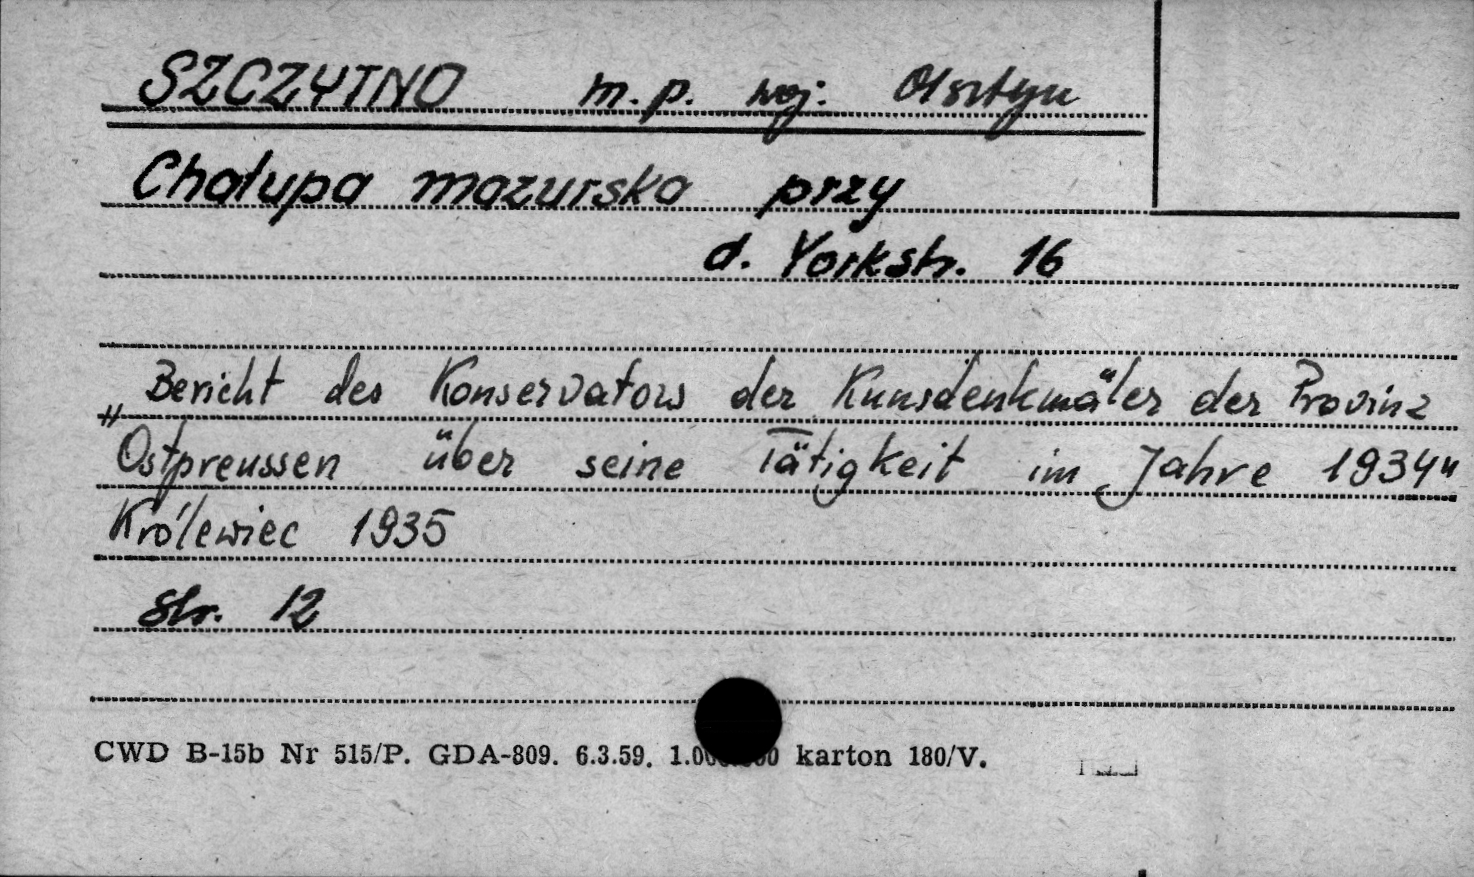 SZCZYTNO m.p. woj. Olsztyn
Chałupa mazurska przy
d. Yorkstr. 16
„Bericht des Konservators der Kunsdenkmäler der Provinz
Ostpreussen über seine Tätigkeit im Jahre 1934"
Królewiec 1935
str. 12
CWD B-15b Nr 515/P. GDA-809. 6.3.59. karton 180/V.